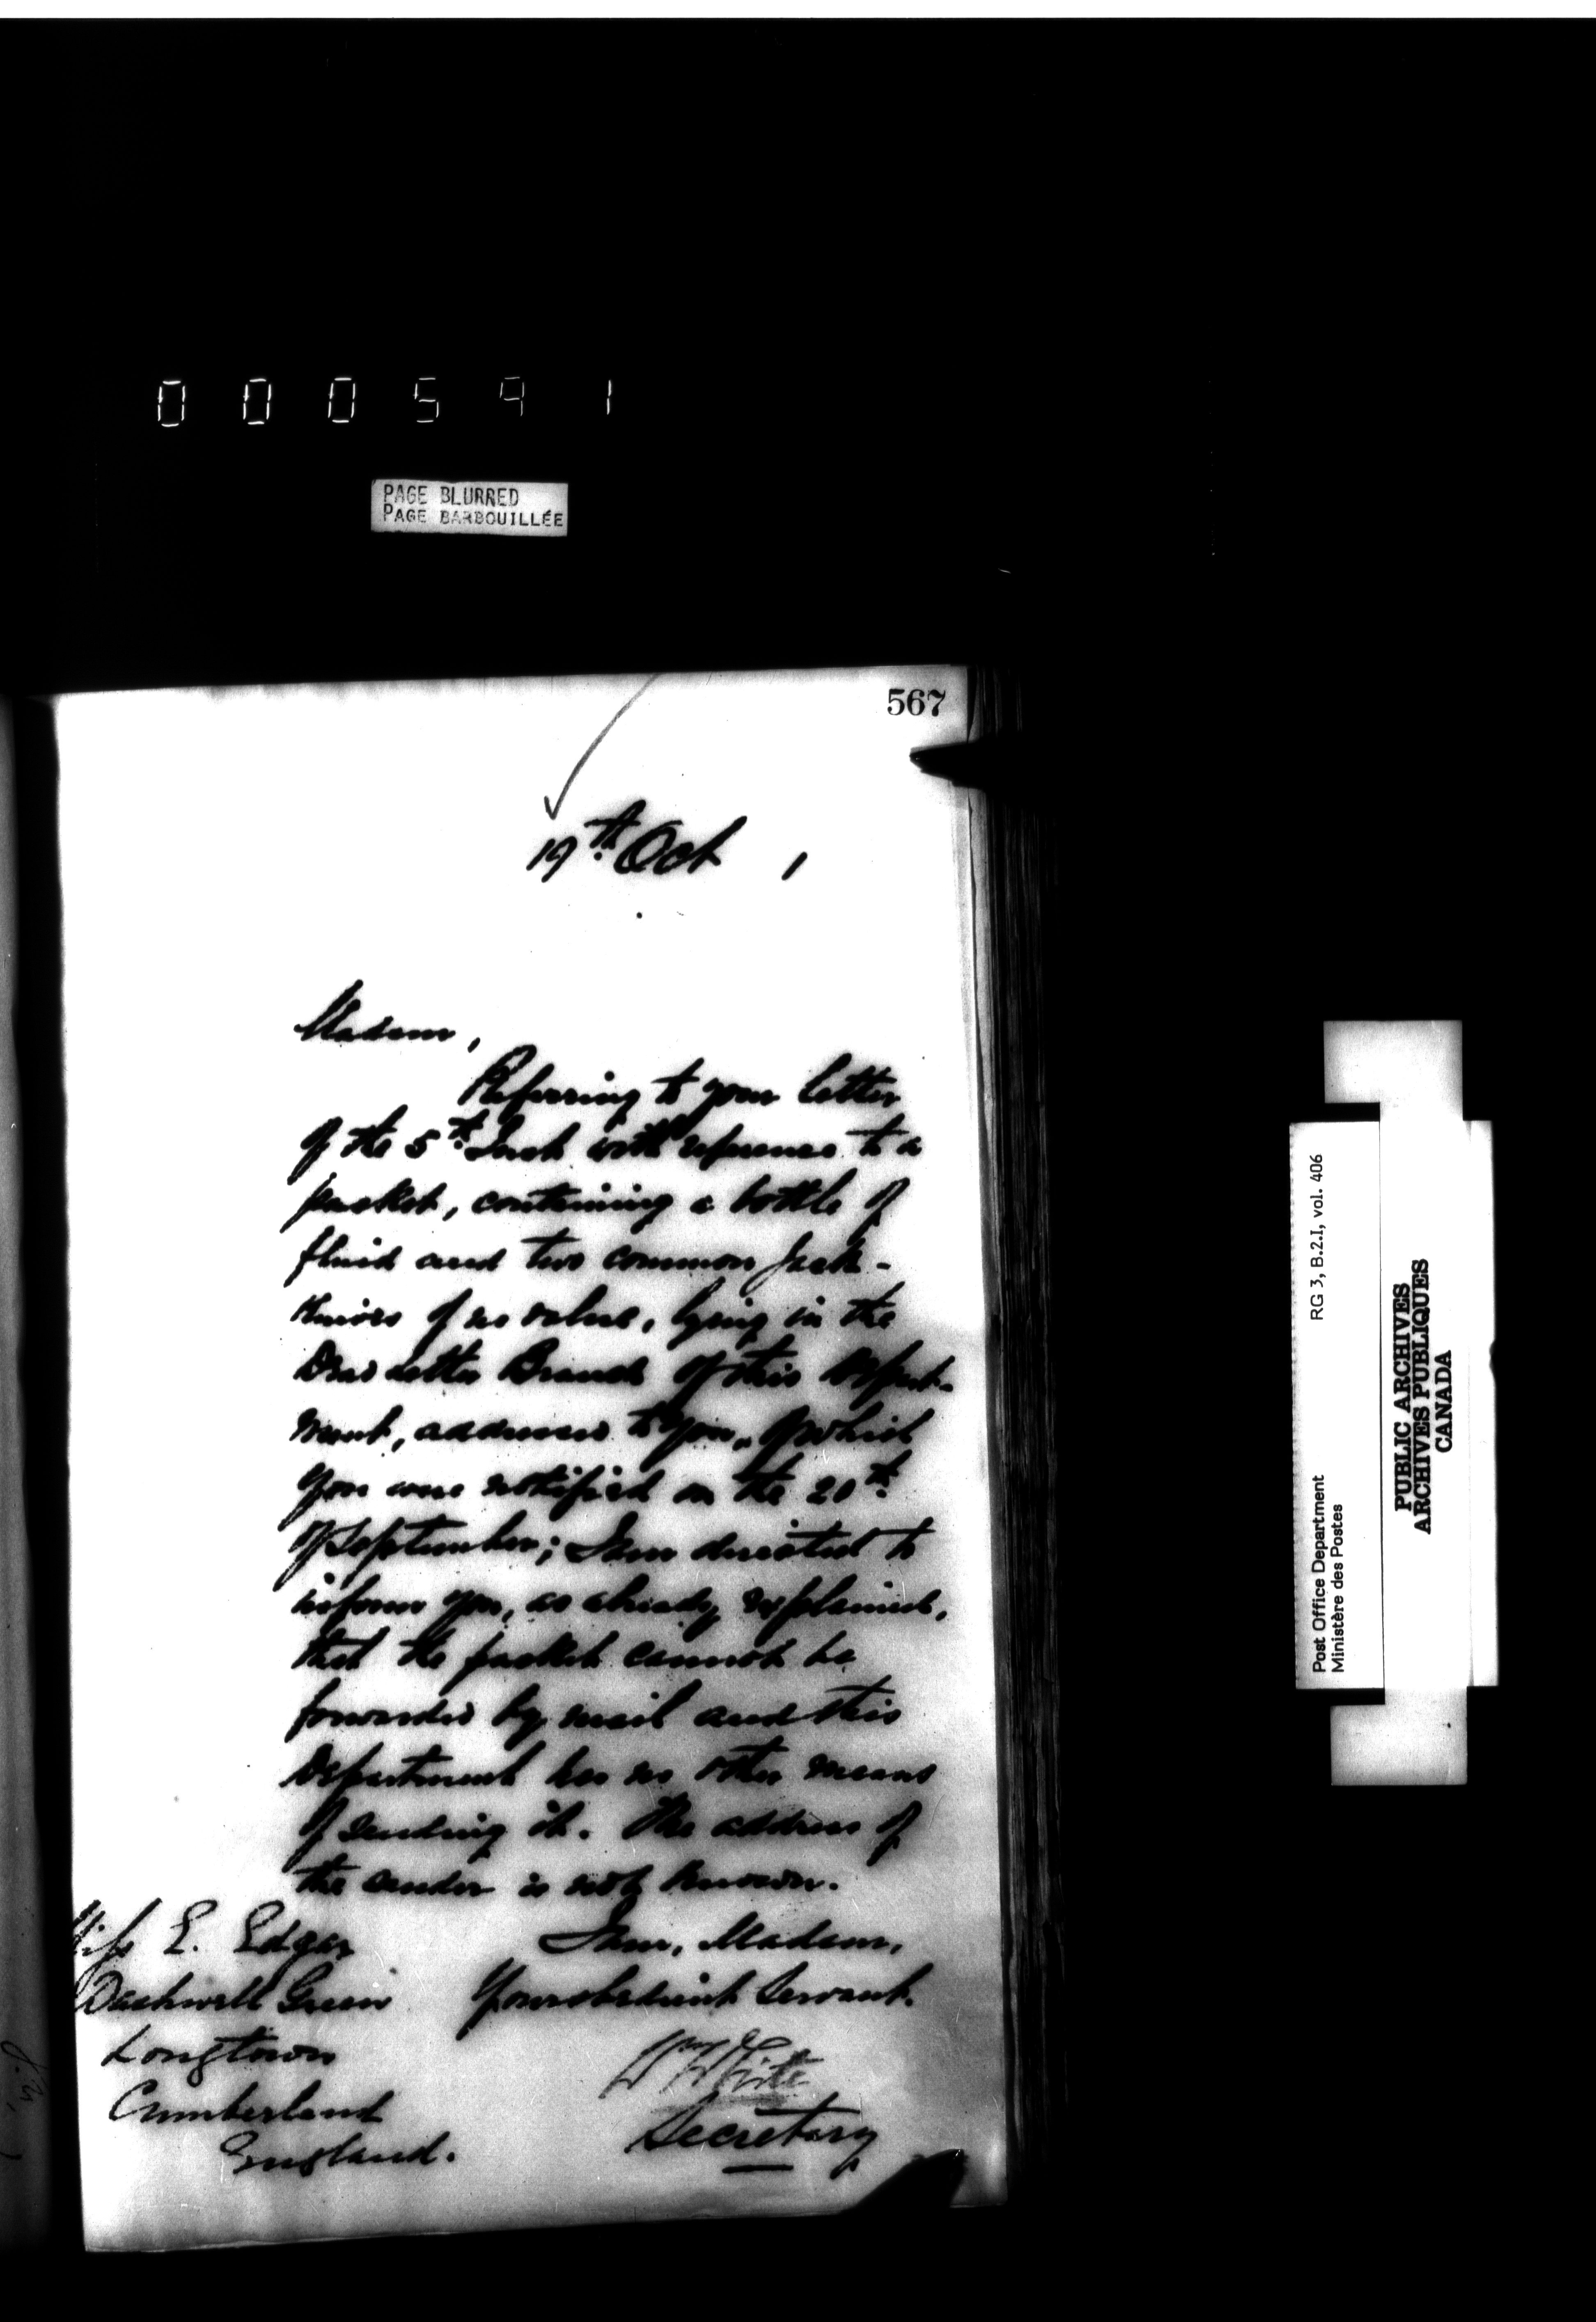 000591
PAGE BLURRED
PAGE BARBOUILLÉE
567
19th Oct 1
Madam,
Referring to your letter
of the 5th Inst with reference to a
packet, containing a bottle of
fluid and two common Jack-
knives of no value, lying in the
Dead Letter Branch of this Depart-
ment, addressed to you, of which
you were notified on the 20th
of September; I am directed to
inform you, as already explained,
that the packet cannot be
forwarded by mail and this
Department has no other means
of sending it. The address of
the sender is not known.
I am, Madam,
Your obedient Servant.
Wm White
Secretary
Miss E. Edgar
Green
Longtown
Cumberland
England.
Post Office Department RG 3, B.2.I, vol. 406
Ministère des Postes
PUBLIC ARCHIVES
ARCHIVES PUBLIQUES
CANADA